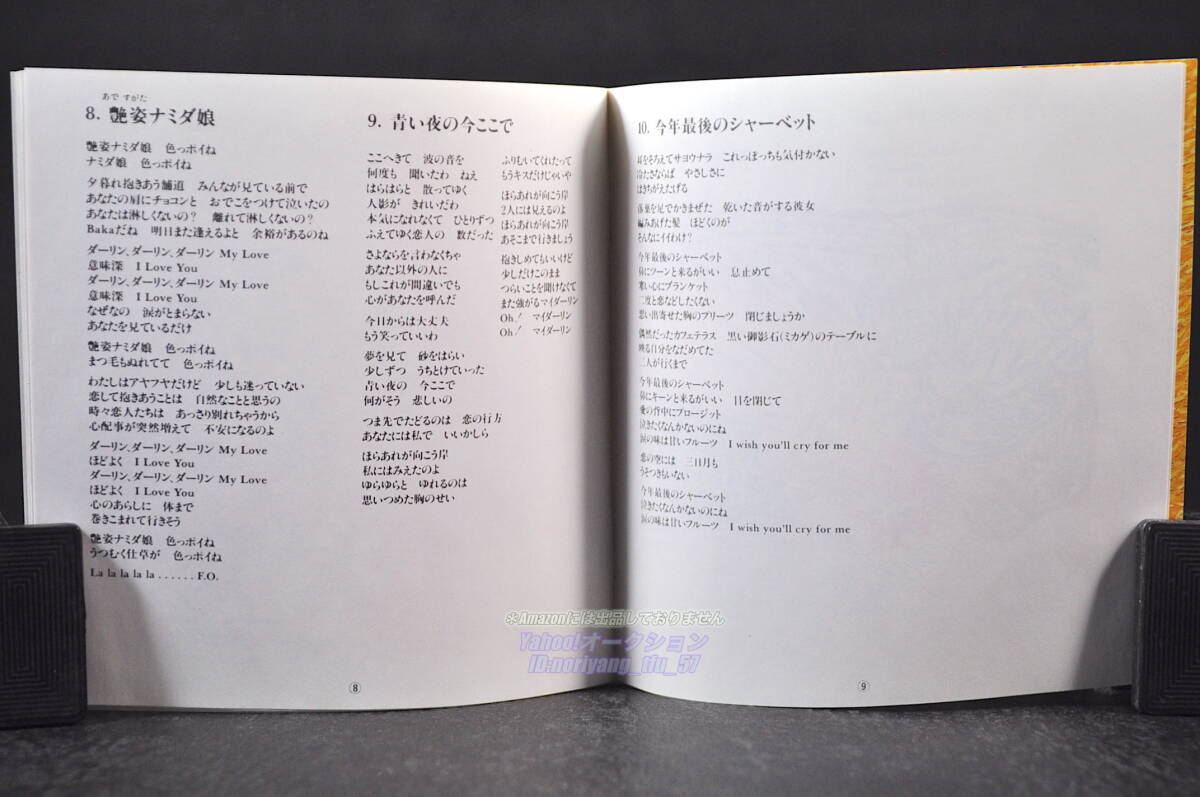 あで すがた
8. 艶姿ナミダ娘
艶姿ナミダ娘 色っポイね
ナミダ娘 色っポイね
夕暮れ抱きあう舗道 みんなが見ている前で
あなたの肩にチョコンと おでこをつけて泣いたの
あなたは淋しくないの? 離れて淋しくないの?
Bakaだね 明日また逢えるよと 余裕があるのね
ダーリン、ダーリン、ダーリン My Love
意味深 I Love You
ダーリン、ダーリン、ダーリン My Love
意味深 I Love You
なぜなの 涙がとまらない
あなたを見ているだけ
艶姿ナミダ娘 色っポイね
まつ毛もぬれてて 色っポイね
わたしはアヤフヤだけど 少しも迷っていない
恋して抱きあうことは 自然なことと思うの
時々恋人たちは あっさり別れちゃうから
心配事が突然増えて 不安になるのよ
ダーリン、ダーリン、ダーリン My Love
ほどよく I Love You
ダーリン、ダーリン、ダーリン My Love
ほどよく I Love You
心のあらしに 体まで
巻きこまれて行きそう
艶姿ナミダ娘 色っポイね
うつむく仕草が 色っポイね
La la la la la . . . . . . F.O.
9. 青い夜の今ここで
ここへきて 波の音を
何度も 聞いたわ ねえ
はらはらと 散ってゆく
人影が きれいだわ
本気になれなくて ひとりずつ
ふえてゆく恋人の 数だった
さよならを言わなくちゃ
あなた以外の人に
もしこれが間違いでも
心があなたを呼んだ
今日からは大丈夫
もう笑っていいわ
夢を見て 砂をはらい
少しずつ うちとけていった
青い夜の 今ここで
何がそう 悲しいの
つま先でたどるのは 恋の行方
あなたには私で いいかしら
ほらあれが向こう岸
私にはみえたのよ
ゆらゆらと ゆれるのは
思いつめた胸のせい
ふりむいてくれたって
もうキスだけじゃいや
ほらあれが向こう岸
2人には見えるのよ
ほらあれが向こう岸
あそこまで行きましょう
抱きしめてもいいけど
少しだけこのまま
つらいことを聞けなくて
また強がるマイダーリン
Oh! マイダーリン
Oh! マイダーリン
⑧
10. 今年最後のシャーベット
耳をそろえてサヨウナラ これっぽっちも気付かない
冷たさならば やさしさに
はきちがえたげる
落葉を足でかきまぜた 乾いた音がする彼女
編みあげた髪 ほどくのが
そんなにイイわけ?
今年最後のシャーベット
鼻にツーンと来るがいい 息止めて
寒い心にブランケット
二度と恋などしたくない
思い出寄せた胸のプリーツ 閉じましょうか
偶然だったカフェテラス 黒い御影石(ミカゲ)のテーブルに
映る自分をなだめてた
二人が行くまで
今年最後のシャーベット
鼻にキーンと来るがいい 目を閉じて
愛の背中にプロージット
泣きたくなんかないのにね
涙の味は甘いフルーツ I wish you'll cry for me
恋の空には 三日月も
うそつきもいない
今年最後のシャーベット
泣きたくなんかないのにね
涙の味は甘いフルーツ I wish you'll cry for me
⑨
＊Amazonには出品しておりません
Yahoo!オークション
ID:noriyang_tfu_57